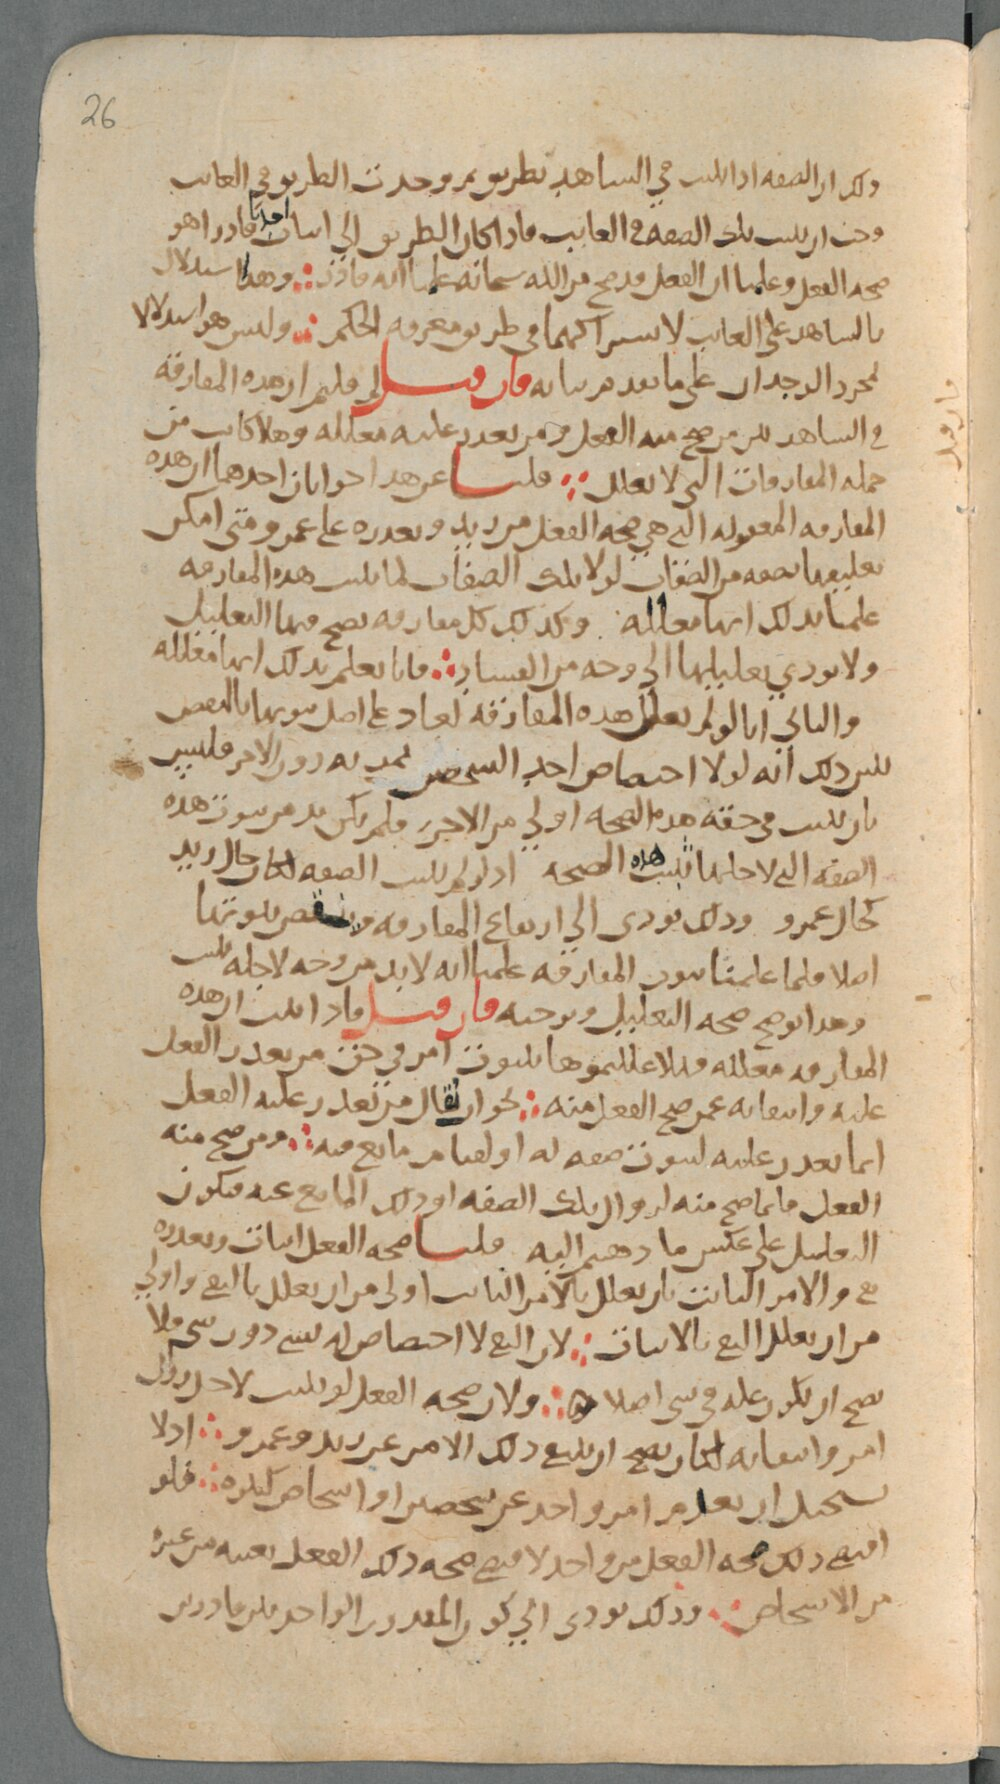 26
ذلك ان الصفه اذا ثبتت في الشاهد بطريق ثم وجدت الطريق في الغايب
وجب ان يثبت تلك الصفه في الغايب فاذا كان الطريق الى اثبات احدنا قادرا هو
صحه الفعل وعلمنا ان الفعل قد صح من الله سبحانه علمنا انه قادر وهذا استدلال
بالشاهد على الغايب لاشتراكهما في طريق معرفه الحكم وليس هو استدلالا
بمجرد الوجدان على ما تقدم بيانه فان قيل لم قلتم ان هذه المفارقه
في الشاهد بين من صح منه الفعل ومن تعذر عليه معلله وهلا كانت من
جمله المفارقات التي لا تعلل قلنا عن هذا جوابان احدهما ان هذه
المفارقه المعقوله التي هي صحه الفعل من زيد وتعذره على عمرو متى امكن
تعليقها بصفه من الصفات لولا تلك الصفات لما ثبتت هذه المفارقه
علمنا بذلك انها معلله وكذلك كل مفارقه يصح فيها التعليل
ولا يودي تعليلها الى وجه من الفساد فانا نعلم بذلك انها معلله
والثاني انا لو لم نعلل هذه المفارقه لعاد على اصل ثبوتها بالنقض
يبين ذلك انه لولا اختصاص احد الشخصين بمزيه دون الاخر فليس
بان يثبت في حقه هذه الصحه اولى من الاخر فلم يكن بد من ثبوت هذه
الصفه التي لاجلها ثبتت هذه الصحه اذ لو لم تثبت الصفه لكان حال زيد
كحال عمرو وذلك يودي الى ارتفاع المفارقه وينقض ثبوتها
اصلا فلما علمنا ثبوت المفارقه علمنا انه لا بد من وجه لاجله ثبتت
وهذا يوضح صحه التعليل ويوجبه فان قيل فاذا ثبت ان هذه
المفارقه معلله فهلا عللتموها بثبوت امر في حق من تعذر الفعل
عليه وانتفايه عمن صح الفعل منه نحو ان يقال من تعذر عليه الفعل
انما تعذر عليه لثبوت صفه له او لقيام مانع فيه ومن صح منه
الفعل فانما صح منه لزوال تلك الصفه او ذلك المانع عنه فيكون
التعليل على عكس ما ذهبتم اليه قلنا صحه الفعل اثبات وتعذره
نفي والامر الثابت بان يعلل بالامر الثابت اولى من ان يعلل بالنفي واولى
من ان يعلل النفي بالاثبات لان النفي لا اختصاص له بشي دون شي فلا
يصح ان يكون عله في شي اصلا ولان صحه الفعل لو ثبتت لاجل زوال
امر وانتفايه لكان يصح ان ينتفي ذلك الامر عن زيد وعمرو اذ لا
يستحيل ان يعدم امر واحد عن شخصين او اشخاص كثيره فلو
اقتضى ذلك صحه الفعل من واحد لاقتضى صحه ذلك الفعل بعينه من غيره
من الاشخاص وذلك يودي الى كون المقدور الواحد بين قادرين
فان قيل